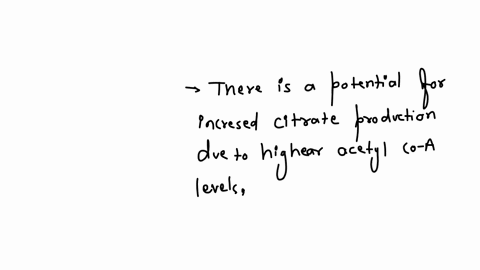 → There is a potential for
incresed citrate production
due to highear acetyl co-A
levels,